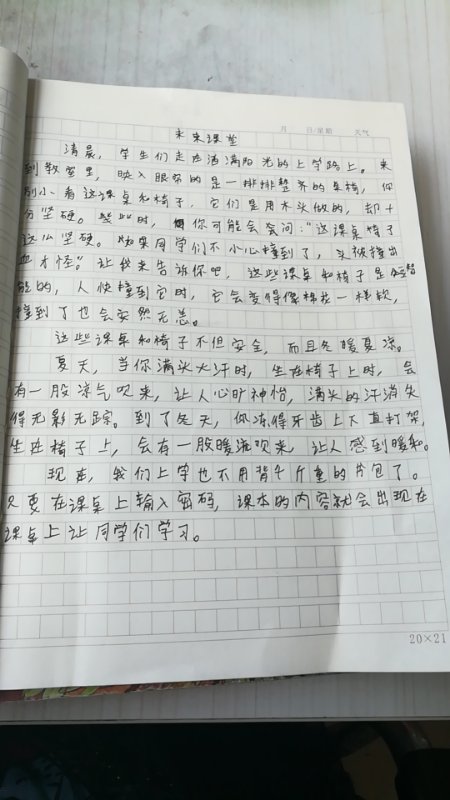 月 日/星期 天气
未来课堂
清晨，学生们走在洒满阳光的上学路上。来
到教室里，映入眼帘的是一排排整齐的桌椅，你
别小看这课桌和椅子，它们是用木头做的，却十
分坚硬。此时，你可能会会问："这课桌椅子
这么坚硬。如果同学们不小心撞到了，头被撞出
血才怪。"让我来告诉你吧，这些课桌和椅子是智
能的，人快撞到它时，它会变得像棉花一样软，
撞到了也会安然无恙。
这些课桌和椅子不但安全，而且冬暖夏凉。
夏天，当你满头大汗时，坐在椅子上时，会
有一股凉气吹来，让人心旷神怡，满头的汗消失
得无影无踪。到了冬天，你冻得牙齿上下直打架，
坐在椅子上，会有一股暖流吹来，让人感到暖和。
现在，我们上学也不用背千斤重的书包了。
只要在课桌上输入密码，课本的内容就会出现在
课桌上让同学们学习。
20×21